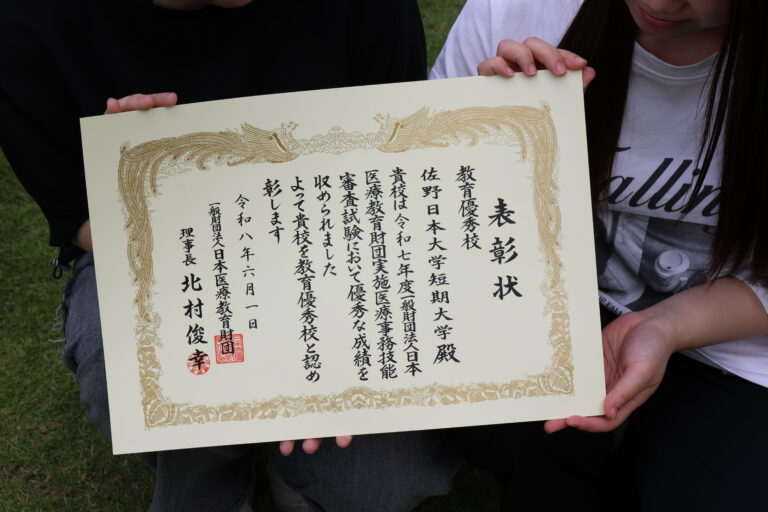 表彰状
教育優秀校
佐野日本大学短期大学殿
貴校は令和七年度一般財団法人日本
医療教育財団実施医療事務技能
審査試験において優秀な成績を
収められました
よって貴校を教育優秀校と認め
彰します
令和八年六月一日
一般財団法人日本医療教育財団
理事長 北村俊幸
alling